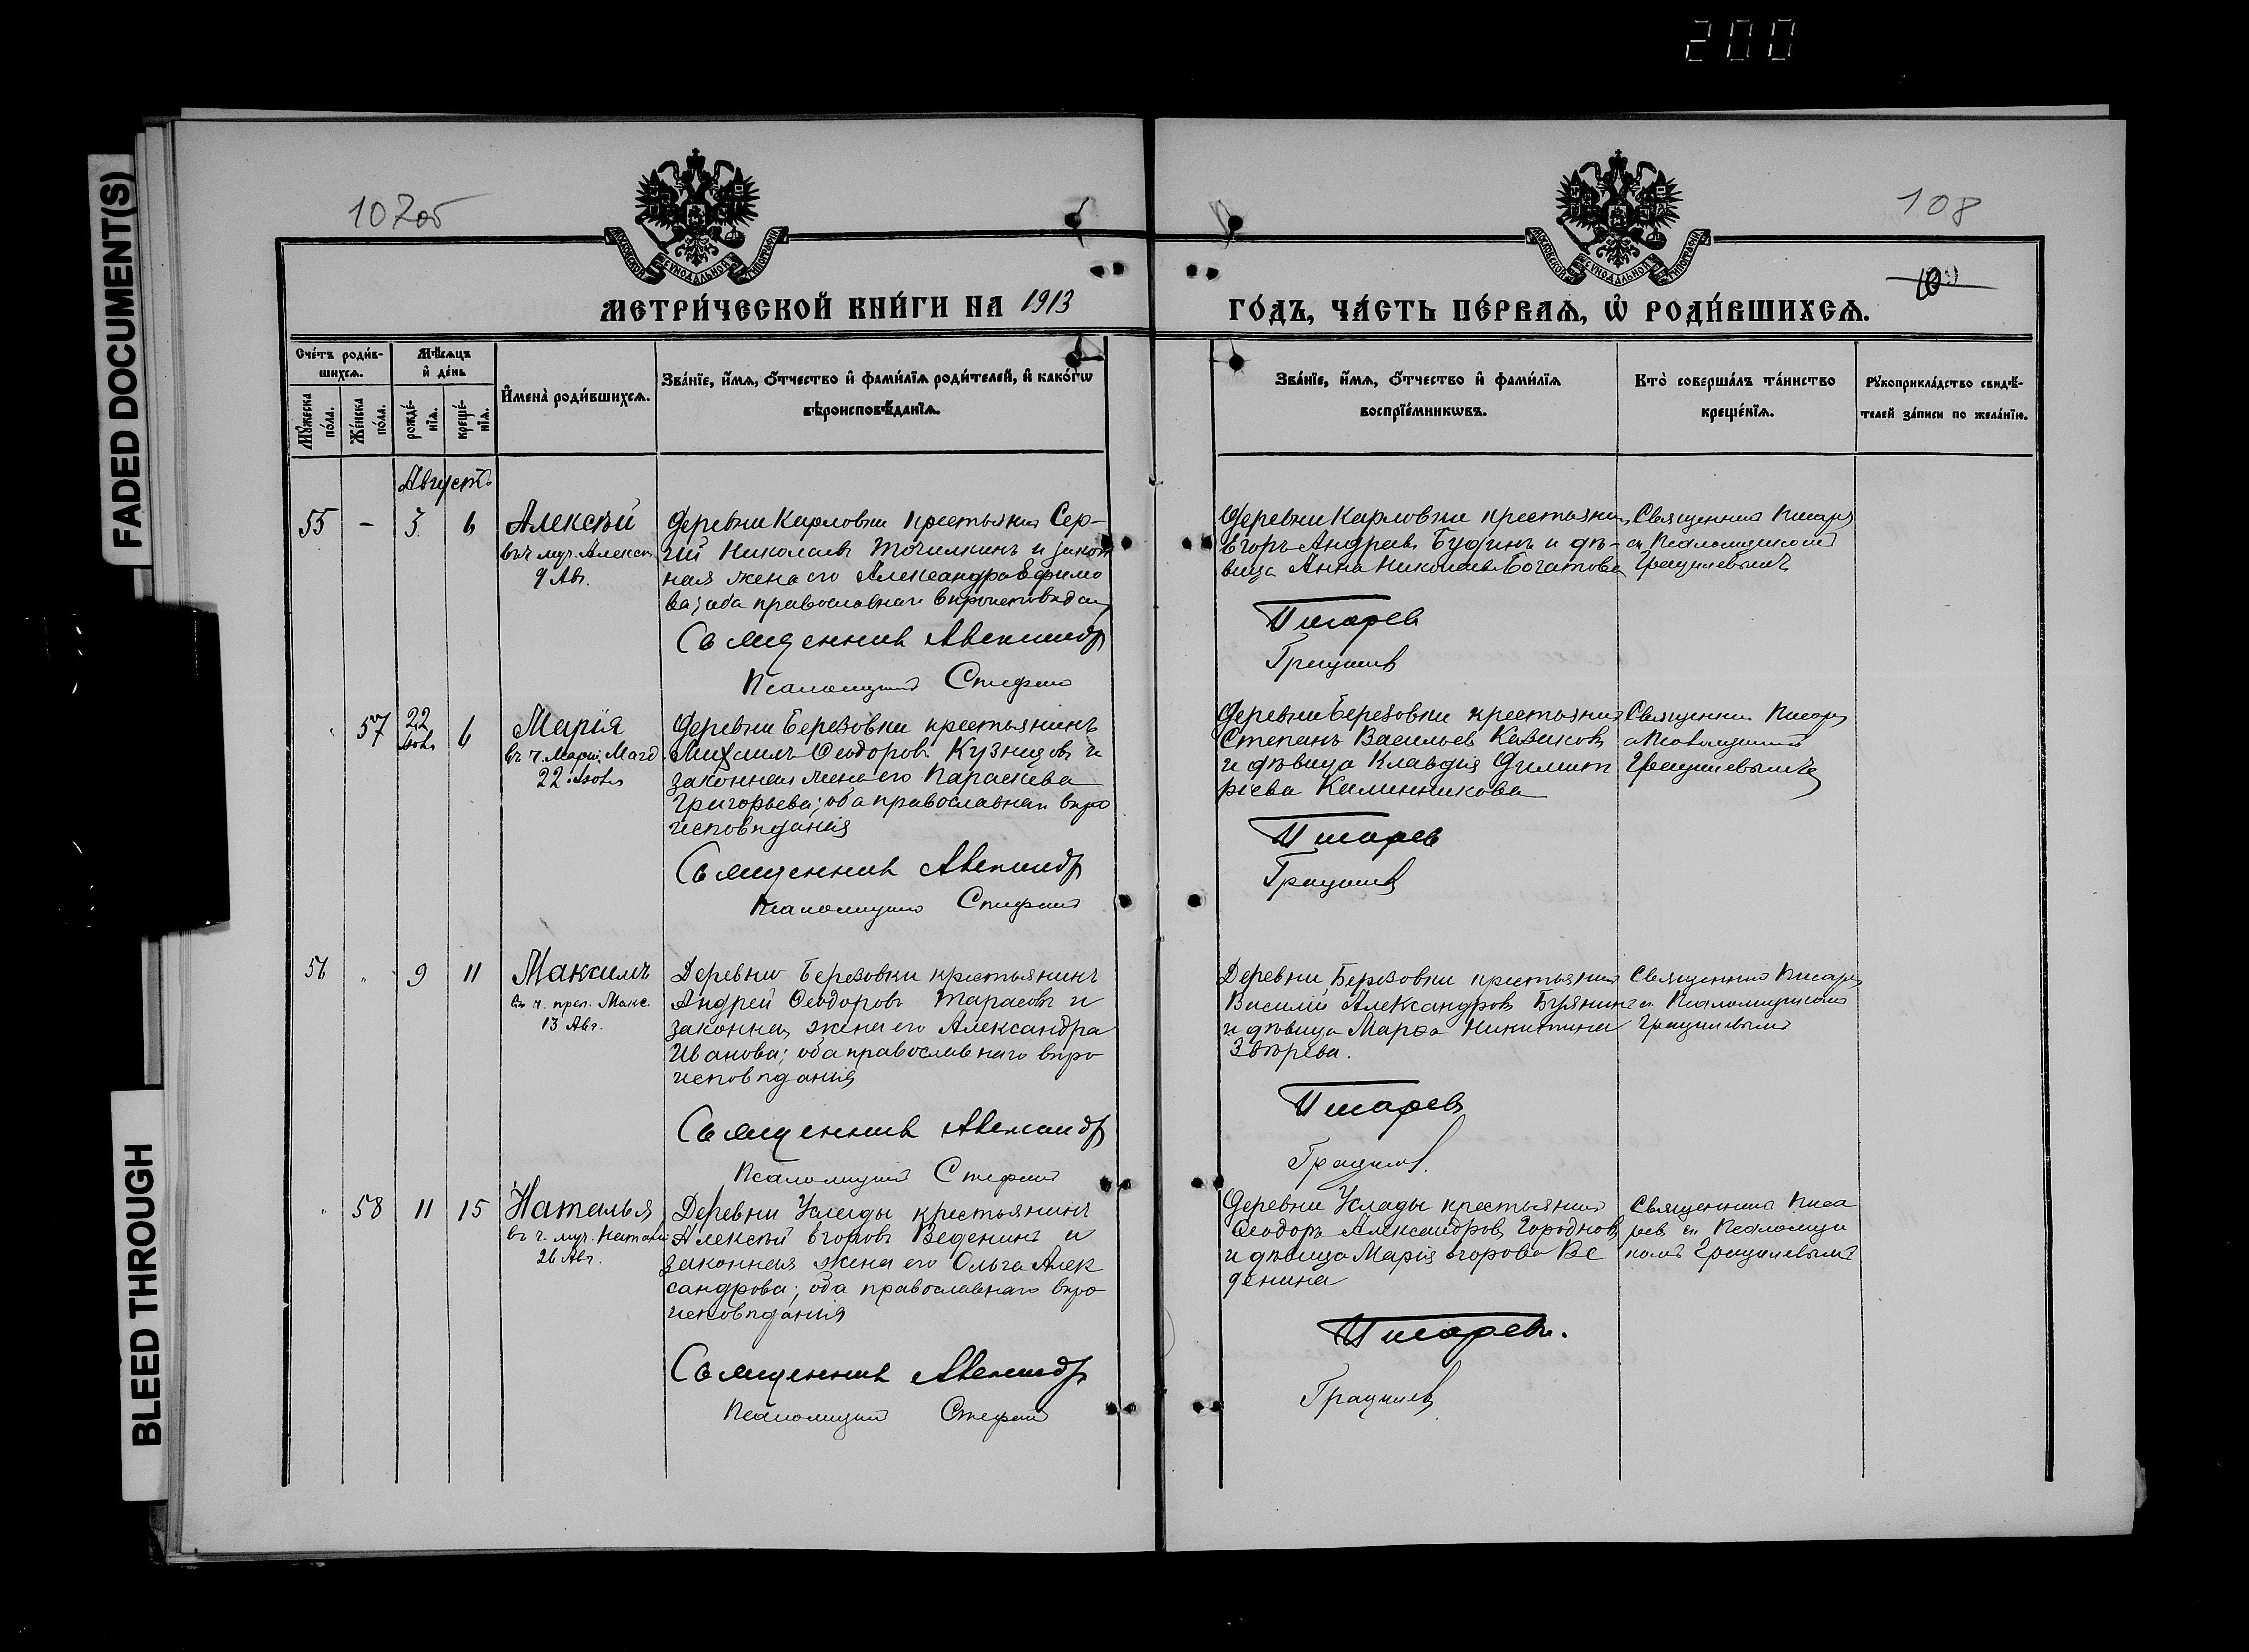 200
FADED DOCUMENT(S)
BLEED THROUGH
107об
108
МОСКОВСКОЙ СѴНОДАЛЬНОЙ ТИПОГРАФІИ
МОСКОВСКОЙ СѴНОДАЛЬНОЙ ТИПОГРАФІИ
МЕТРИ́ЧЕСКОЙ КНИ́ГИ НА 1913
ГО́ДЪ, ЧА́СТЬ ПЕ́РВАѦ, Ѡ҆ РОДИ́ВШИХСѦ.
Сче́тъ роди́в-
шихсѧ.
Мꙋ́жеска по́ла.
Же́нска по́ла.
Мѣ́сѧцъ
и҆ де́нь
рожде́-
нїѧ.
креще́-
нїѧ.
И҆мена̀ роди́вшихсѧ.
Зва́нїе, и҆́мѧ, ѻ҆́тчество и҆ фами́лїѧ роди́телей, и҆ како́гѡ
вѣроисповѣ́данїѧ.
Зва́нїе, и҆́мѧ, ѻ҆́тчество и҆ фами́лїѧ
воспрїе́мникѡвъ.
Кто̀ соверша́лъ та́инство
креще́нїѧ.
Рꙋкоприкла́дство свидѣ́-
телей за́писи по жела́нїю.
Августъ
55 - 3 6
Алексѣй
въ ч. муч. Алекс.
9 Авг.
Деревни Карловки крестьянинъ Сер-
гій Николаевъ Точилкинъ и закон
ная жена его Александра Ефимо
ва; оба православнаго вѣроисповѣдан
Священник Александр
Псаломщикъ Стефанъ
Деревни Карловки крестьянинъ
Егоръ Андреевъ Будинъ и дѣ-
вица Анна Николаева Богатова
Писарев
Грацилев
Священникъ Писаревъ
съ Псаломщикомъ
Грацилевымъ
57 22 Іюля 6
Марія
въ ч. Маріи Магд.
22 Іюля
Деревни Березовки крестьянинъ
Михаилъ Ѳеодоровъ Кузнецовъ и
законная жена его Параскева
Григорьева; оба православнаго вѣро
исповѣданія
Священник Александр
Псаломщикъ Стефанъ
Деревни Березовки крестьянинъ
Степанъ Васильевъ Казаковъ
и дѣвица Клавдія Димит
ріева Калинникова
Писарев
Грацилев
Священникъ Писаревъ
съ Псаломщикомъ
Грацилевымъ
56 " 9 11
Максимъ
въ ч. преп. Макс.
13 Авг.
Деревни Березовки крестьянинъ
Андрей Ѳеодоровъ Тарасовъ и
законная жена его Александра
Иванова; оба православнаго вѣро
исповѣданія
Священник Александр
Псаломщикъ Стефанъ
Деревни Березовки крестьянинъ
Василій Александровъ
и дѣвица Марѳа Никитина
Звѣрева.
Писаревъ
Грацилев.
Священникъ Писаревъ
съ Псаломщикомъ
Грацилевымъ
" 58 11 15
Наталья
въ ч. муч. Наталіи
26 Авг.
Деревни Услады крестьянинъ
Алексѣй Егоровъ Веденинъ и
законная жена его Ольга Алек
сандрова; оба православнаго вѣро
исповѣданія
Священник Александр
Псаломщикъ Стефанъ
Деревни Услады крестьянинъ
Ѳеодоръ Александровъ Городновъ
и дѣвица Марія Егорова Ве
денина
Писаревъ.
Грацилев
Священникъ Писа
ревъ съ Псаломщи
комъ Грацилевымъ